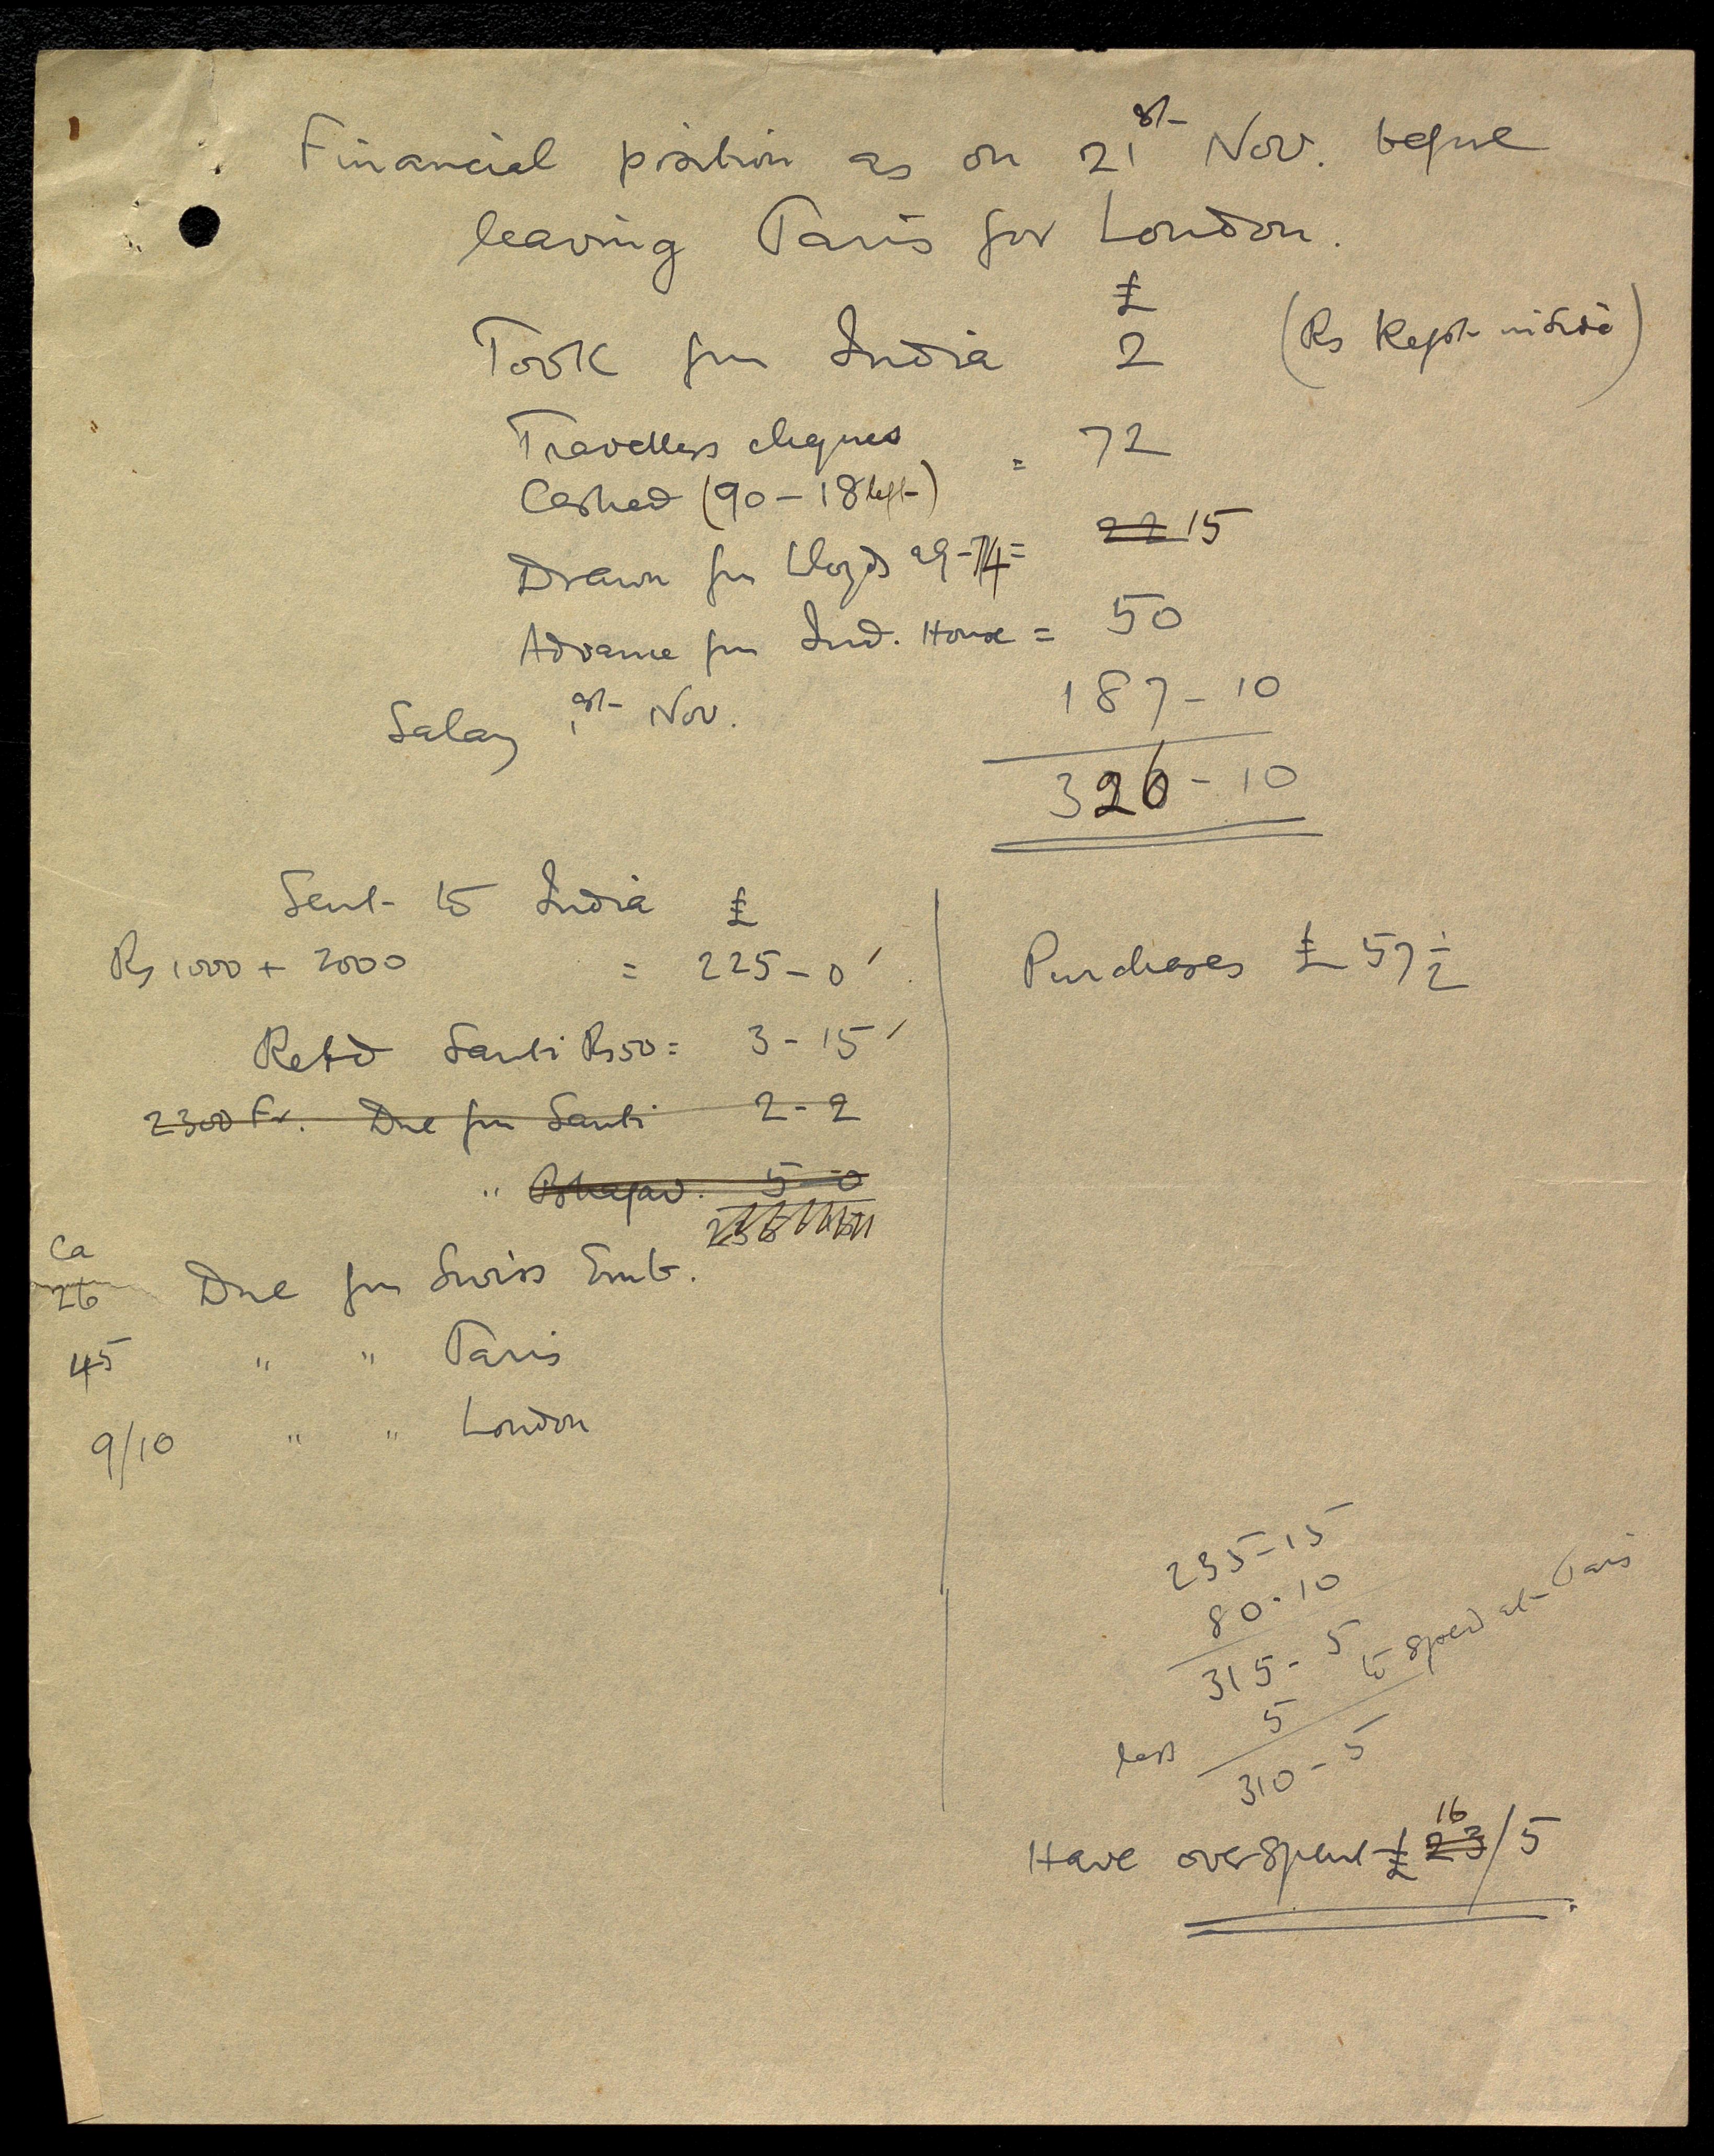 Financial position as on 21st Nov. before
leaving Paris for London.
£
Took fm India 2 (Rs Kept inside)
Travellers cheques
Cashed (90 - 18 left) = 72
Drawn fm Lloyds 29-14 = 22 15
Advance fm Ind. House = 50
Salary 1st Nov. 187 - 10
326 - 10
Sent to India £
Rs 1000 + 2000 = 225 - 0
Retd Santi Rs 50 = 3 - 15
2300 Fr. Due fm Santi 2 - 2
" 5 - 0
Ca
26 Due fm Swiss Emb.
45 " " Paris
9/10 " " London
Purchases £ 57 1/2
235 - 15
80 - 10
315 - 5
less 5 to spend at Paris
310 - 5
Have overspent £ 23 16/5